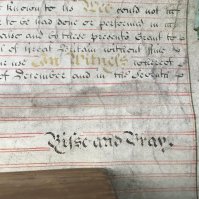 known to us Wee could not
to be had done or performed in
and by these presents Grant to a
of Great Britain without fine
use In Witness whereof
of December and in the Seventh
Bisse and Bray.